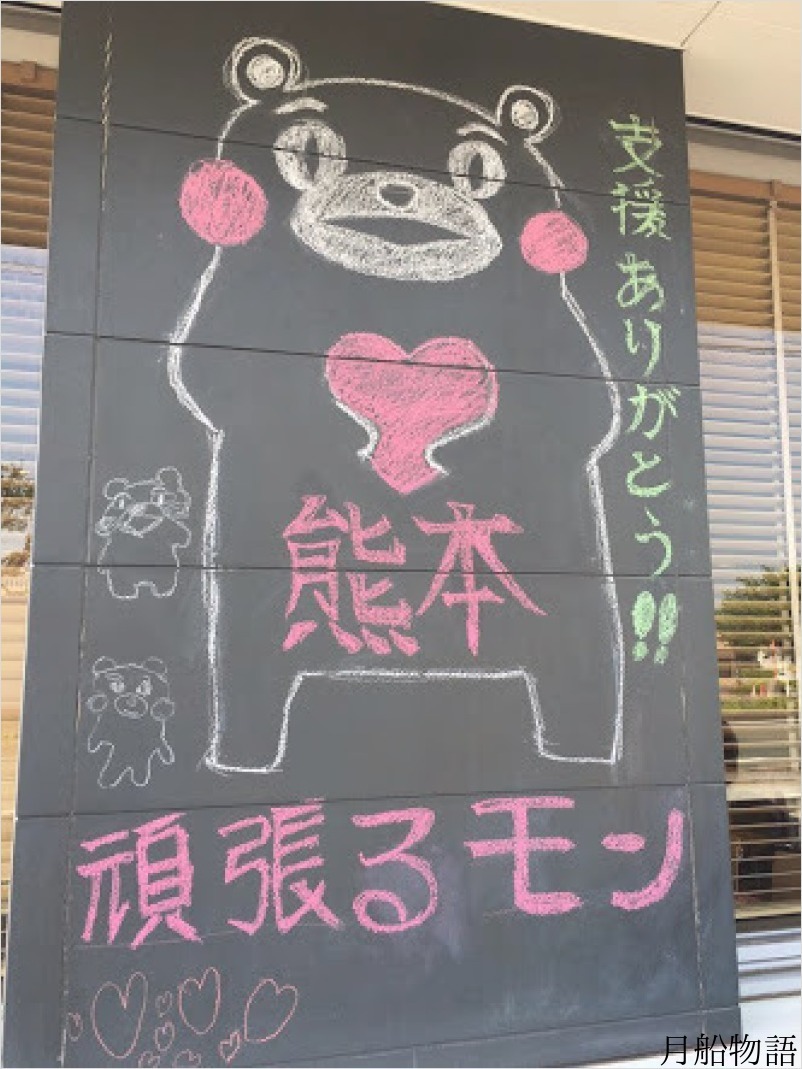 支援ありがとう!!
熊本
頑張るモン
月船物語